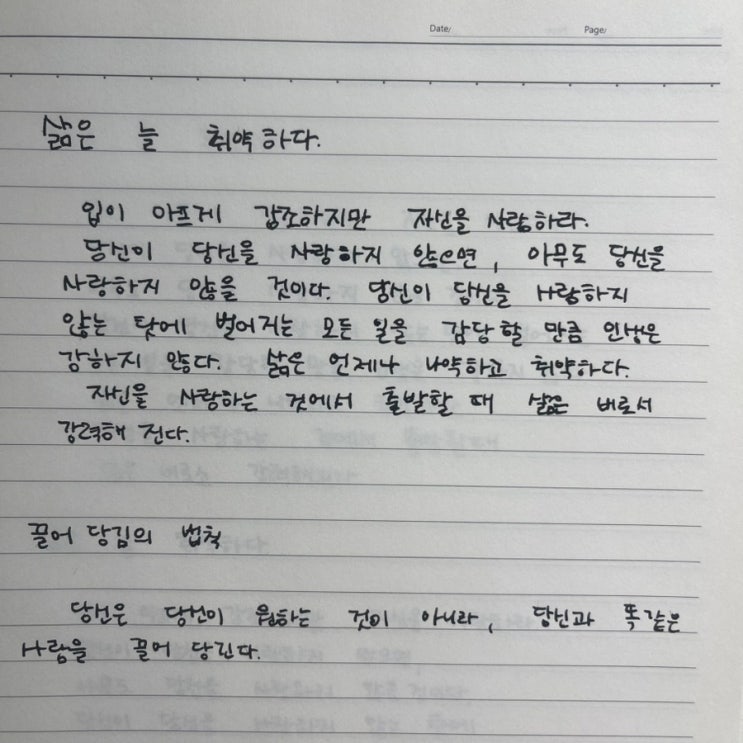 Date/ Page/
삶은 늘 취약하다.
입이 아프게 강조하지만 자신을 사랑하라.
당신이 당신을 사랑하지 않으면, 아무도 당신을
사랑하지 않을 것이다. 당신이 당신을 사랑하지
않는 탓에 벌어지는 모든 일을 감당할 만큼 인생은
강하지 않다. 삶은 언제나 나약하고 취약하다.
자신을 사랑하는 것에서 출발할 때 삶은 비로서
강력해 진다.
끌어 당김의 법칙
당신은 당신이 원하는 것이 아니라, 당신과 똑같은
사람을 끌어 당긴다.